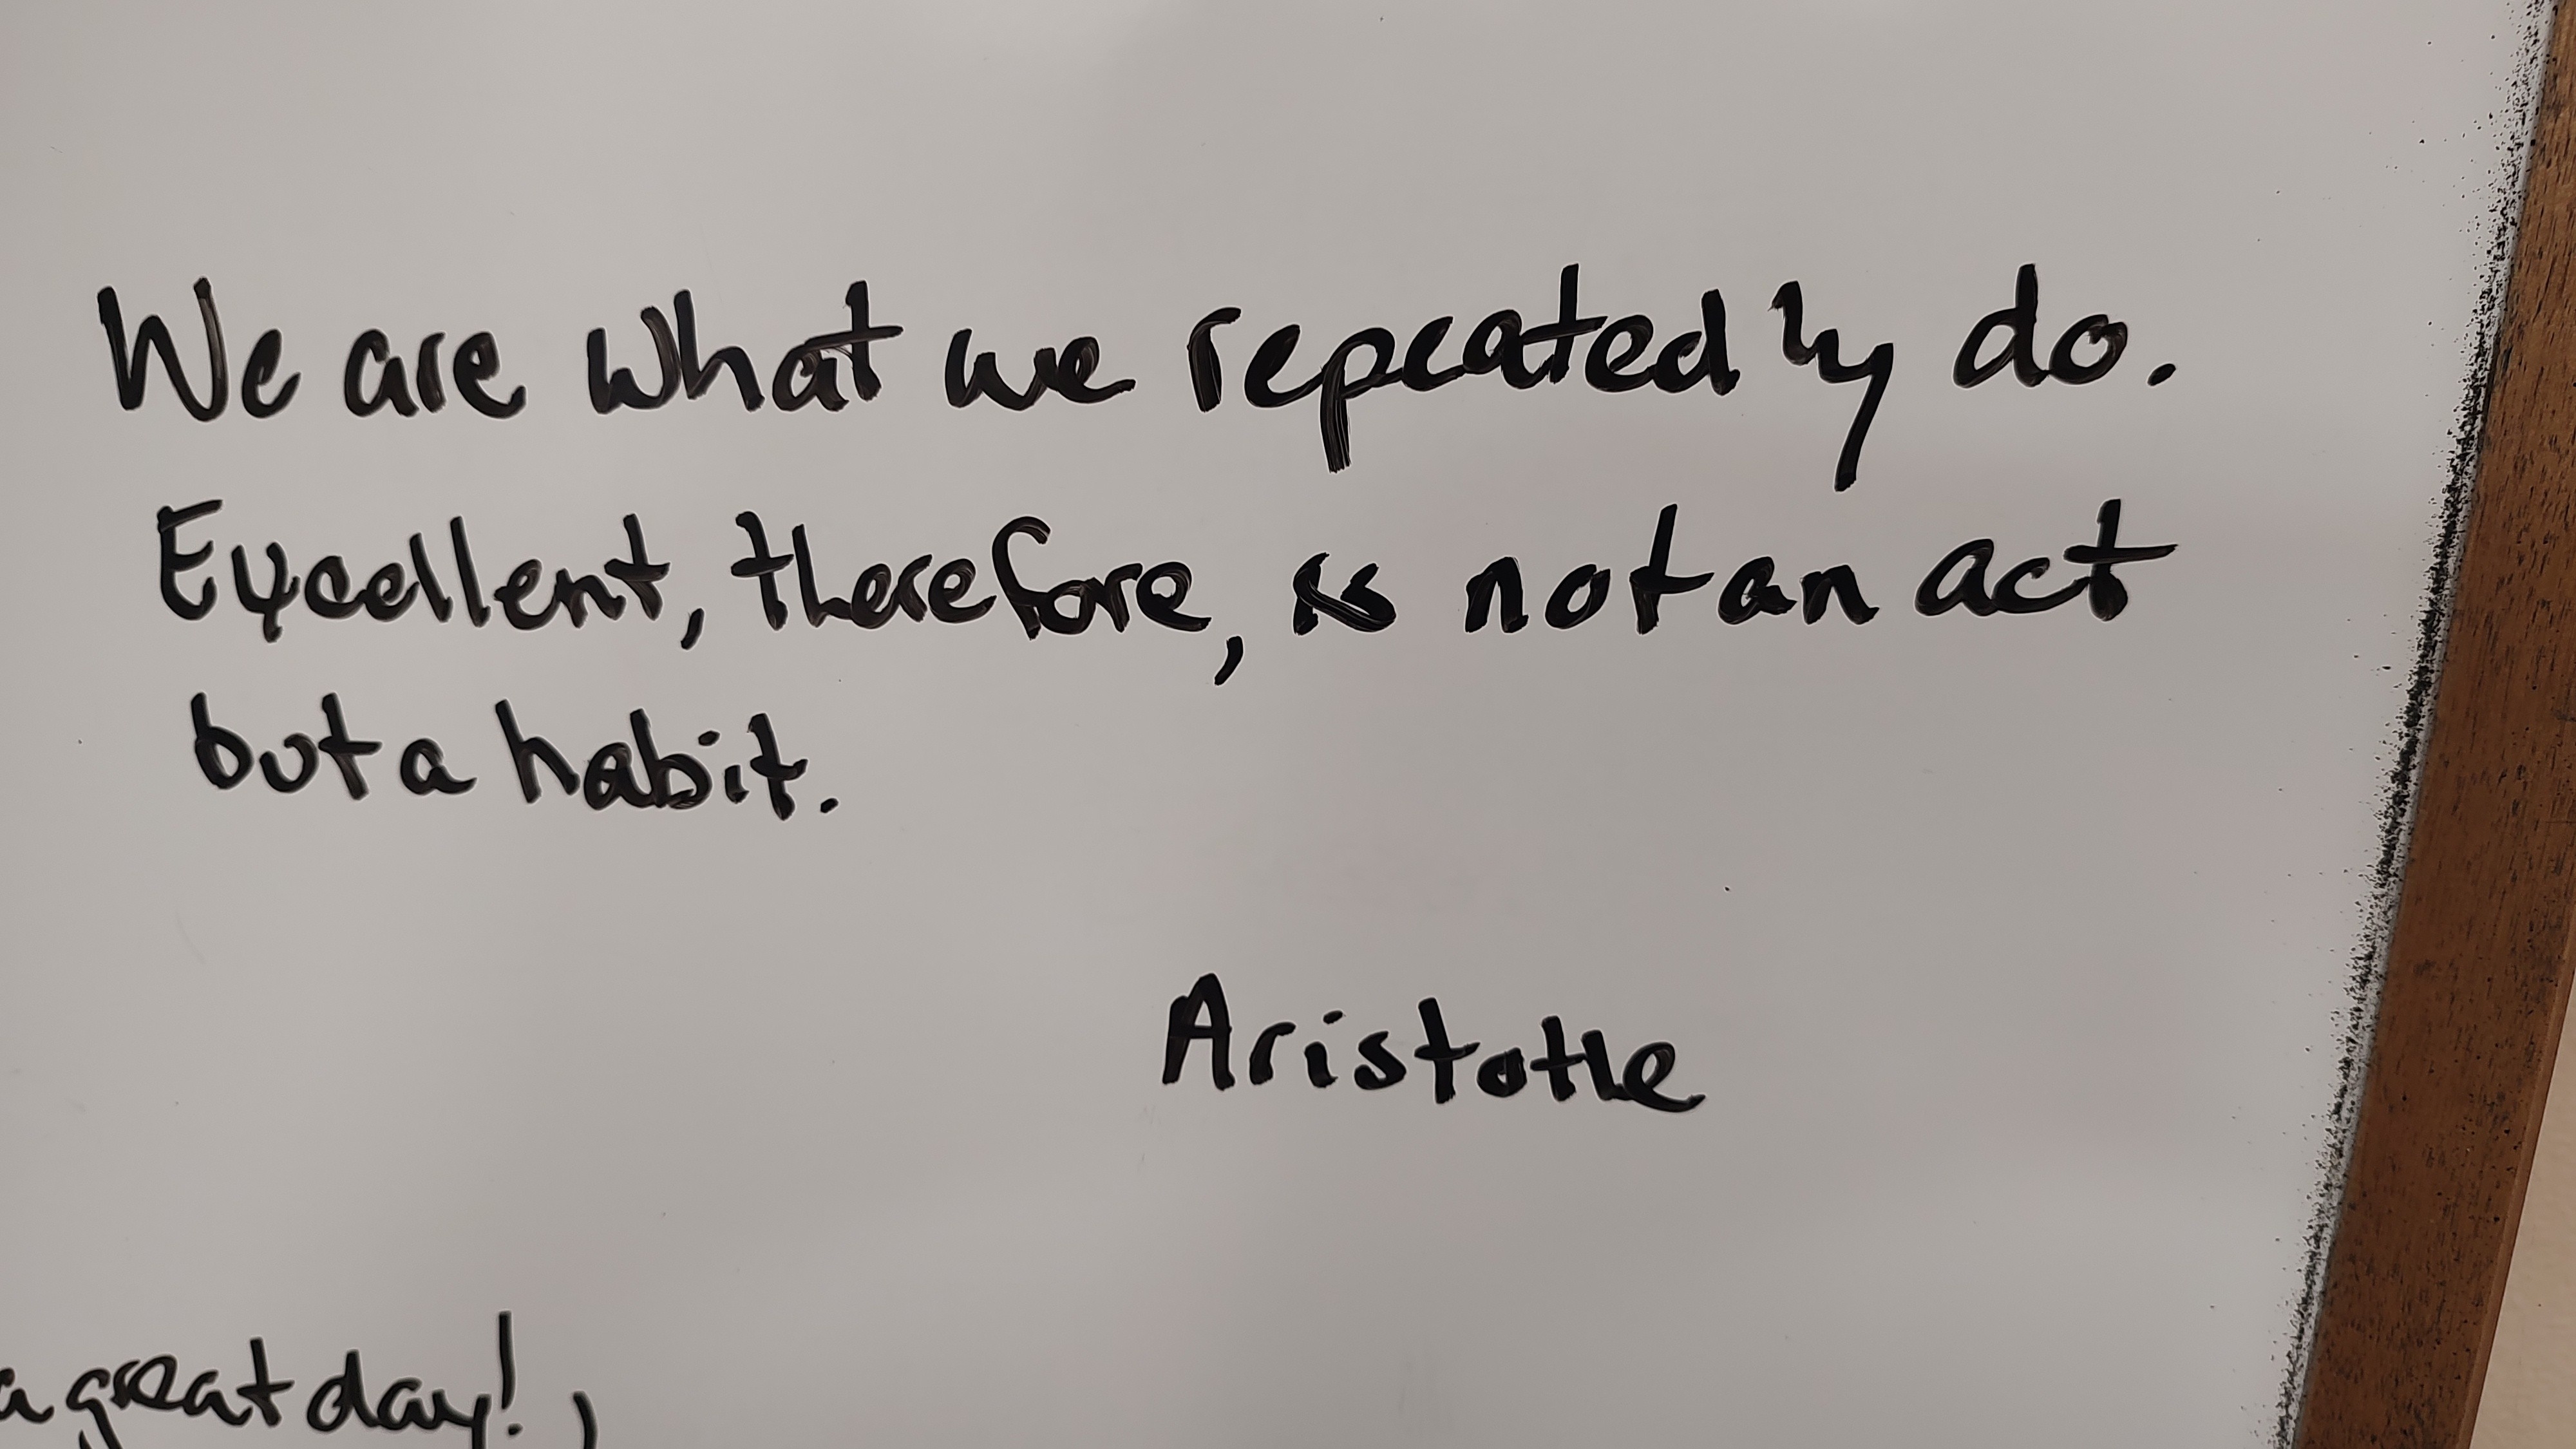 We are what we repeatedly do.
Excellent, therefore, is not an act
but a habit.
Aristotle
a great day!